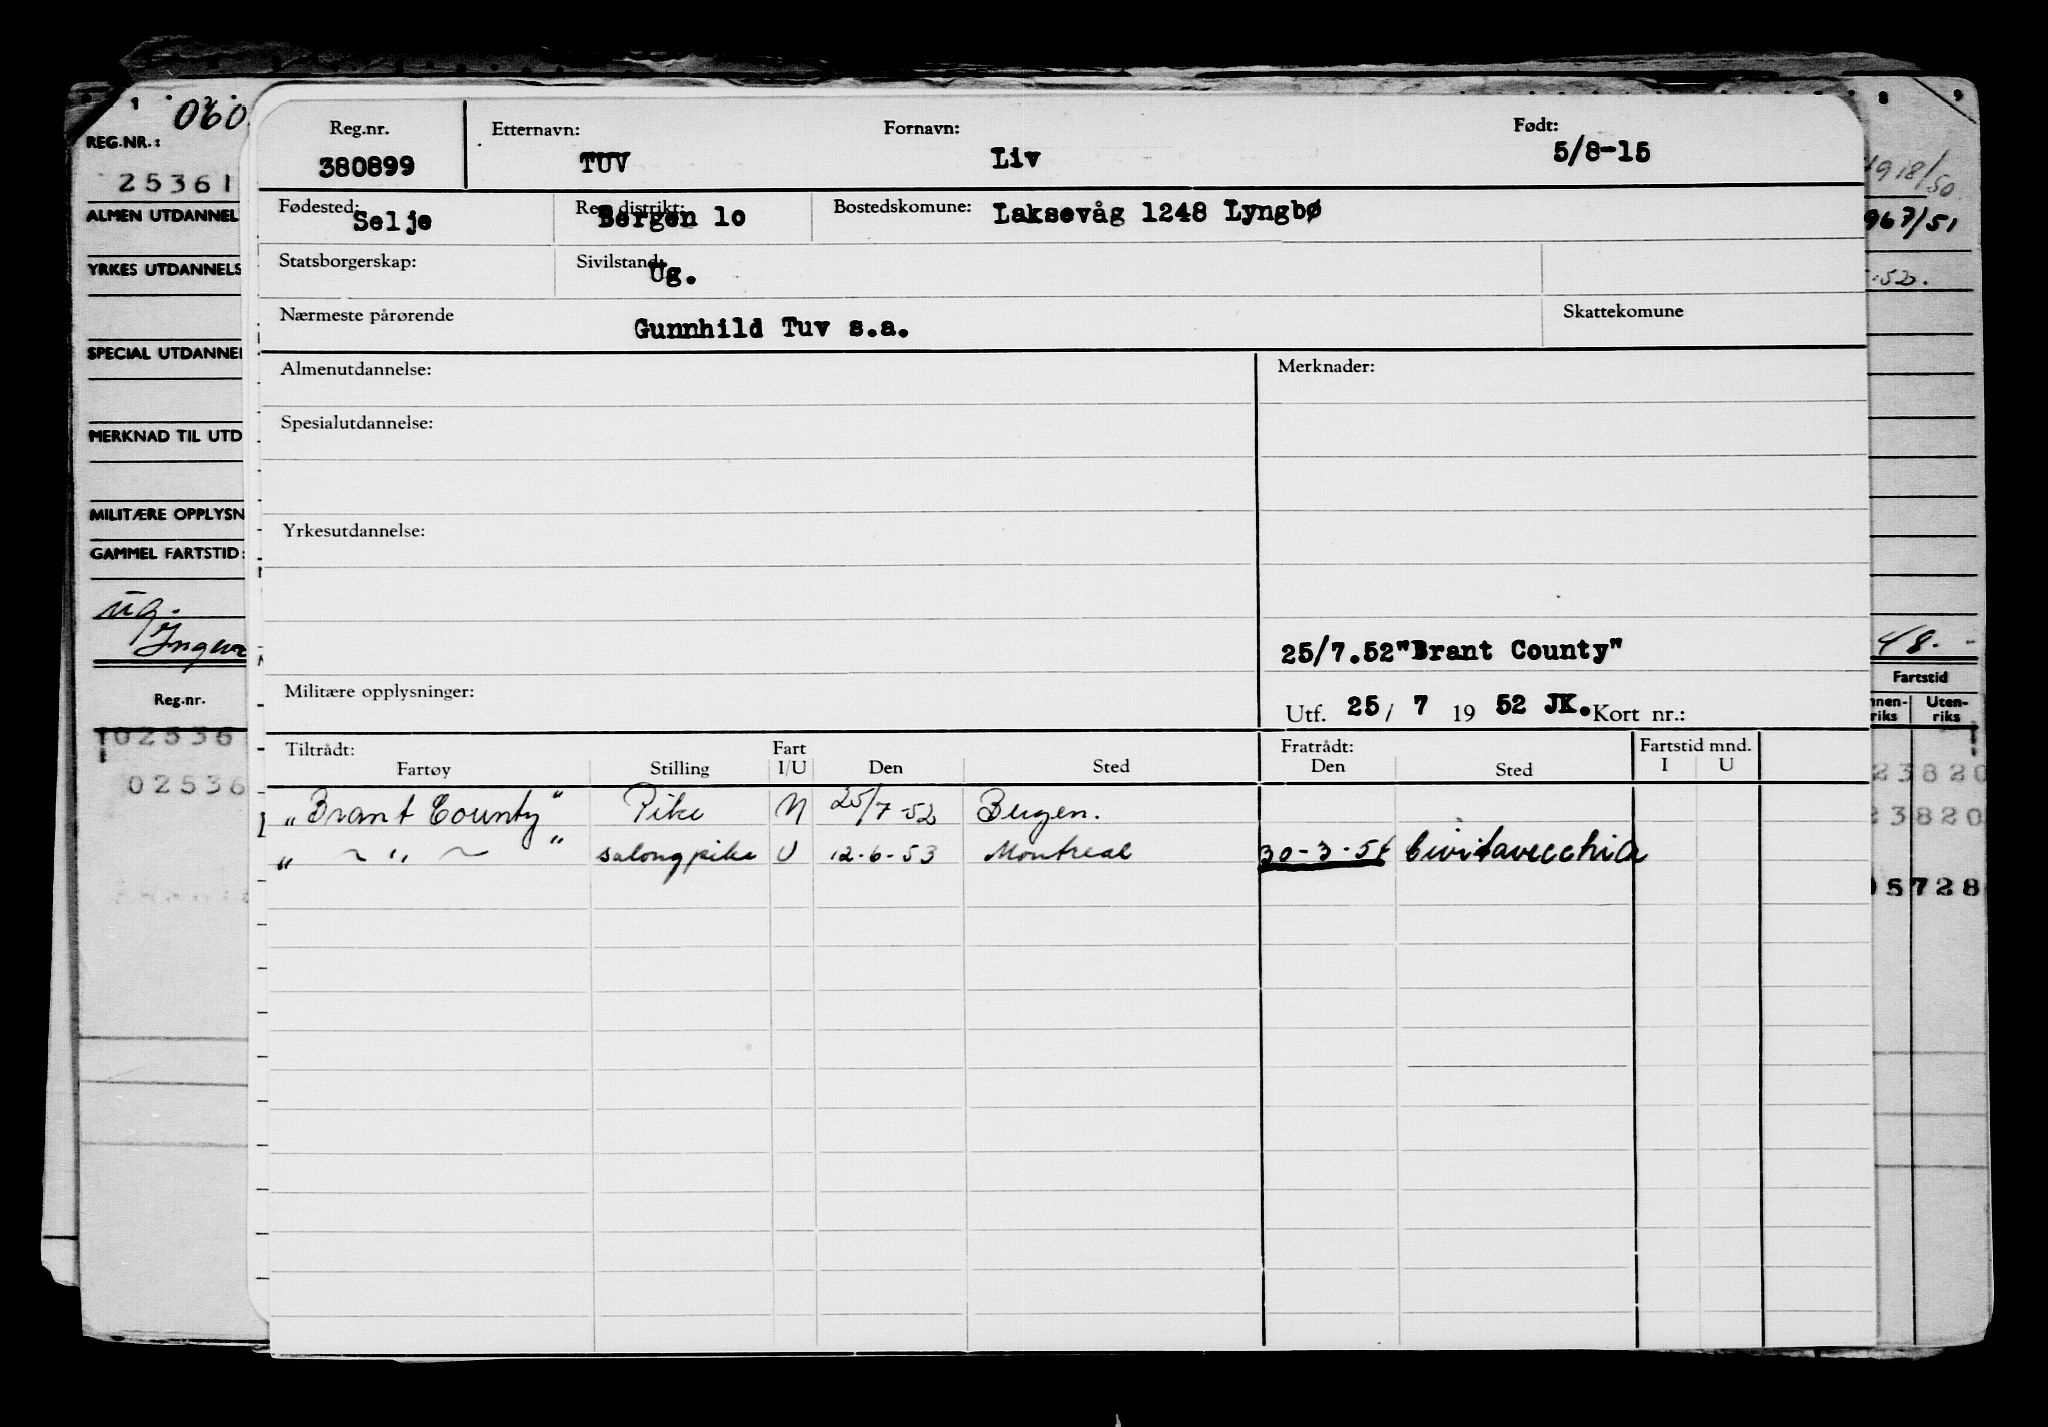 1 . . . 8 9
060
REG.NR.:
25361
ALMEN UTDANNEL
YRKES UTDANNELS
SPECIAL UTDANNEL
MERKNAD TIL UTD
MILITÆRE OPPLYSN
GAMMEL FARTSTID:
ug.
Reg.nr.
02536
02536
Reg.nr. Etternavn: Fornavn: Født:
380899 TUV Liv 5/8-15
Fødested: Selje Reg. distrikt: Bergen 10 Bostedskomune: Laksevåg 1248 Lyngbø
Statsborgerskap: Sivilstand: Ug.
Nærmeste pårørende Gunnhild Tuv s.a. Skattekomune
Almenutdannelse: Merknader:
Spesialutdannelse:
Yrkesutdannelse:
25/7.52"Brant County"
Militære opplysninger: Utf. 25/ 7 19 52 JK. Kort nr.:
Tiltrådt: Fart Fratrådt: Fartstid mnd.
Fartøy Stilling I/U Den Sted Den Sted I U
"Brant County" Pike N 25/7-52 Bergen.
" ~ " ~ " salongpike U 12-6-53 Montreal 30-3-54 Civitavecchia
18/50
967/51
-52.
48.-
Fartstid
nnen-riks Uten-riks
23820
23820
05728